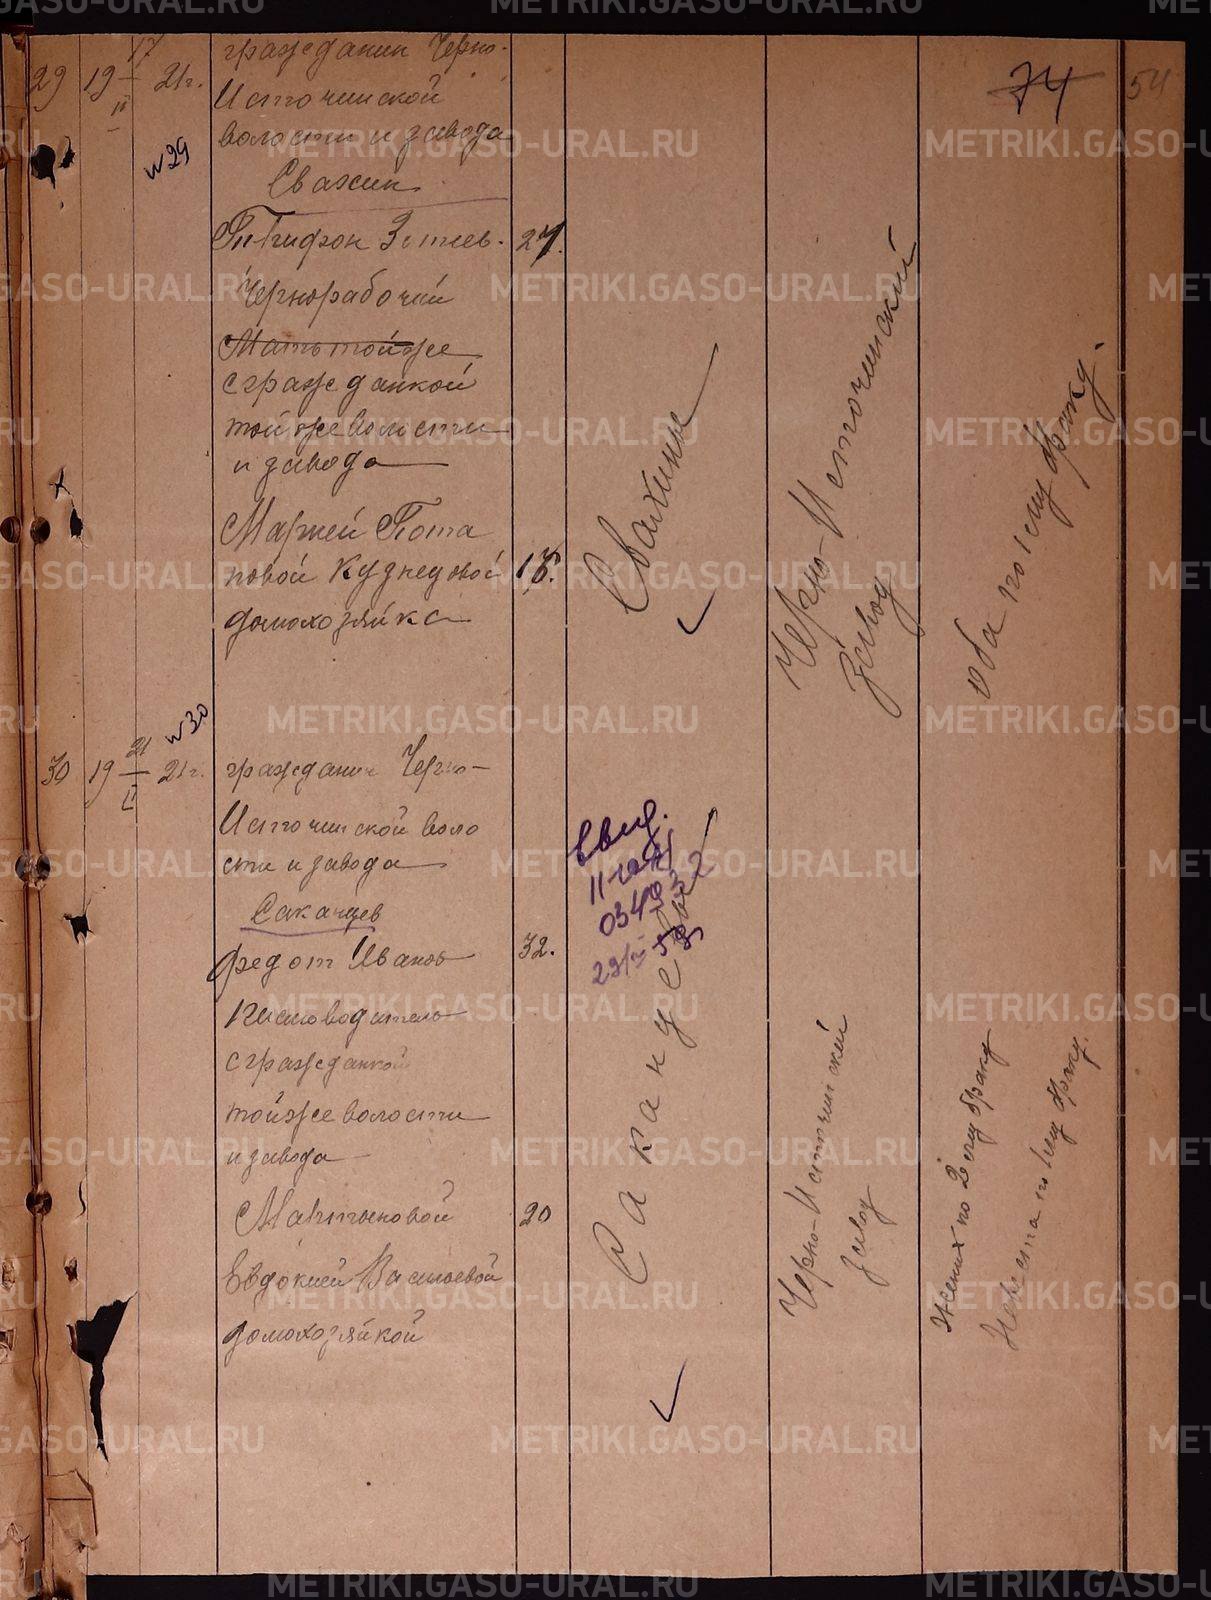 74
54
29 19 17/II 21г.
№29
гражданин Черно-
Источинской
волости и завода
Свахин
Зотиев. 27.
Чернорабочий
Мать той же
с гражданкой
той же волости
и завода
Марией Пота
повой Кузнецовой 18.
домохозяйка
Свахины
Черно-Источинский
Завод
Оба по 1ому браку.
№30
30 19 21/II 21г.
гражданин Черно-
Источинской воло
сти и завода
Саканцев
Федот Иванов 32.
письмоводитель
с гражданкой
той же волости
и завода
Мартыновой 20
Евдокией Васильевой
домохозяйкой
Саканцевы
II-
Черно-Источинский
Завод
Жених по 2ому браку
Невеста по 1ому браку.
METRIKI.GASO-URAL.RU